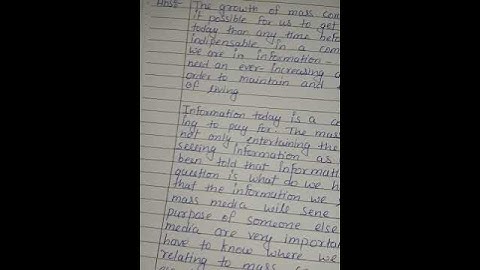 Ans:- The growth of mass com
it possible for us to get
today than any time befor
indispensable in a com
we are in information-
need an ever-increasing
order to maintain and
of living
Information today is a co
ing to pay for. The mass
not only entertaining the
seeling information as
been told that informat
question is what do we h
that the information we
mass media will sene
purpose of someone else
media are very importa
have to know where we
relating to mass